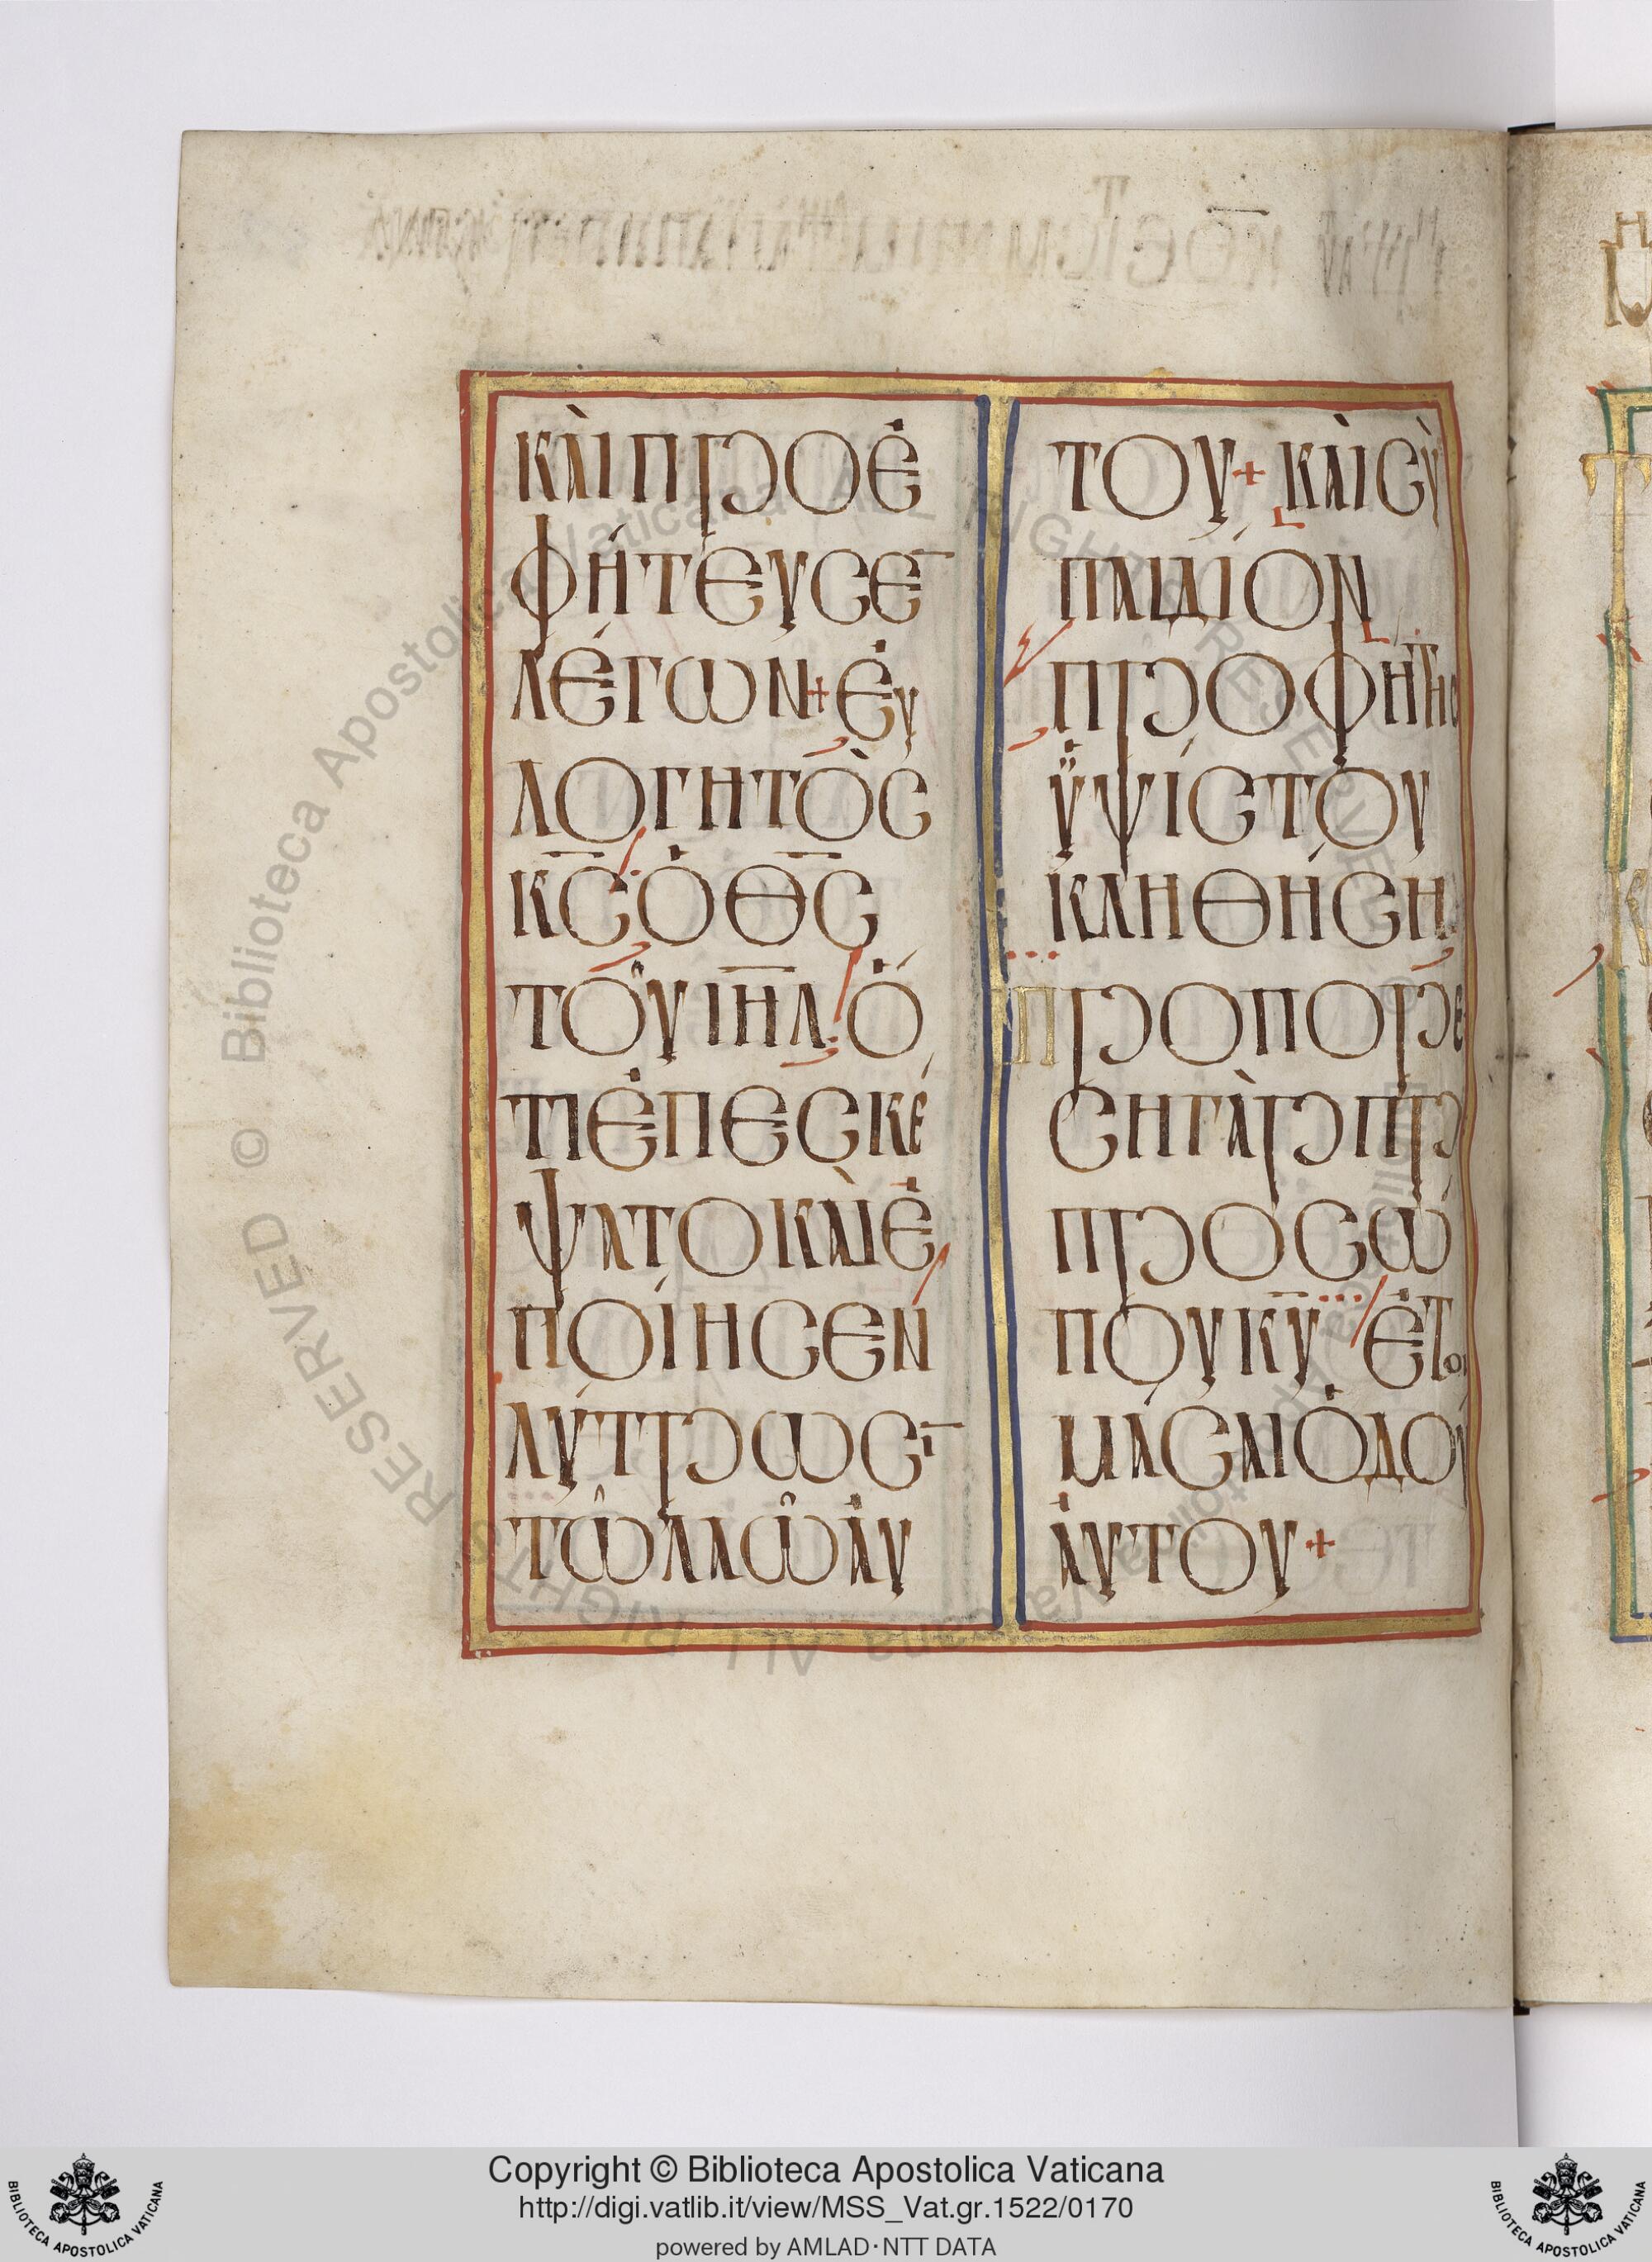 ΚΑῚΠΡΟΕ
ΦΉΤΕΥΣΕ̅
ΛΈΓΩΝ+ΕΥ
ΛΟΓΗΤῸΣ
Κ̅Σ̅ὉΘ̅Σ̅
ΤΟΥ͂ΙΗ̅Λ̅·Ὅ
ΤΙἘΠΕΣΚΈ
ΨΑΤΟΚΑῚἘ
ΠΟΊΗΣΕΝ
ΛΎΤΡΩΣΙ̅
ΤΩ͂ΛΑΩ͂ΑΥ
ΤΟΥ+ΚΑῚΣῪ
ΠΑΙΔΊΟΝ
ΠΡΟΦΉΤΗΣ
ὙΨΊΣΤΟΥ
ΚΛΗΘΉΣΗ
ΠΡΟΠΟΡΕΎ
ΣΗΓᾺΡΠΡῸ
ΠΡΟΣΏ
ΠΟΥΚ̅Υ̅ἙΤΟΙ
ΜΆΣΑΙὉΔΟΥ
ΑΥΤΟΥ+
Copyright © Biblioteca Apostolica Vaticana
http://digi.vatlib.it/view/MSS_Vat.gr.1522/0170
powered by AMLAD·NTT DATA
BIBLIOTECA APOSTOLICA VATICANA
BIBLIOTECA APOSTOLICA VATICANA
© Biblioteca Apostolica Vaticana ALL RIGHTS RESERVED